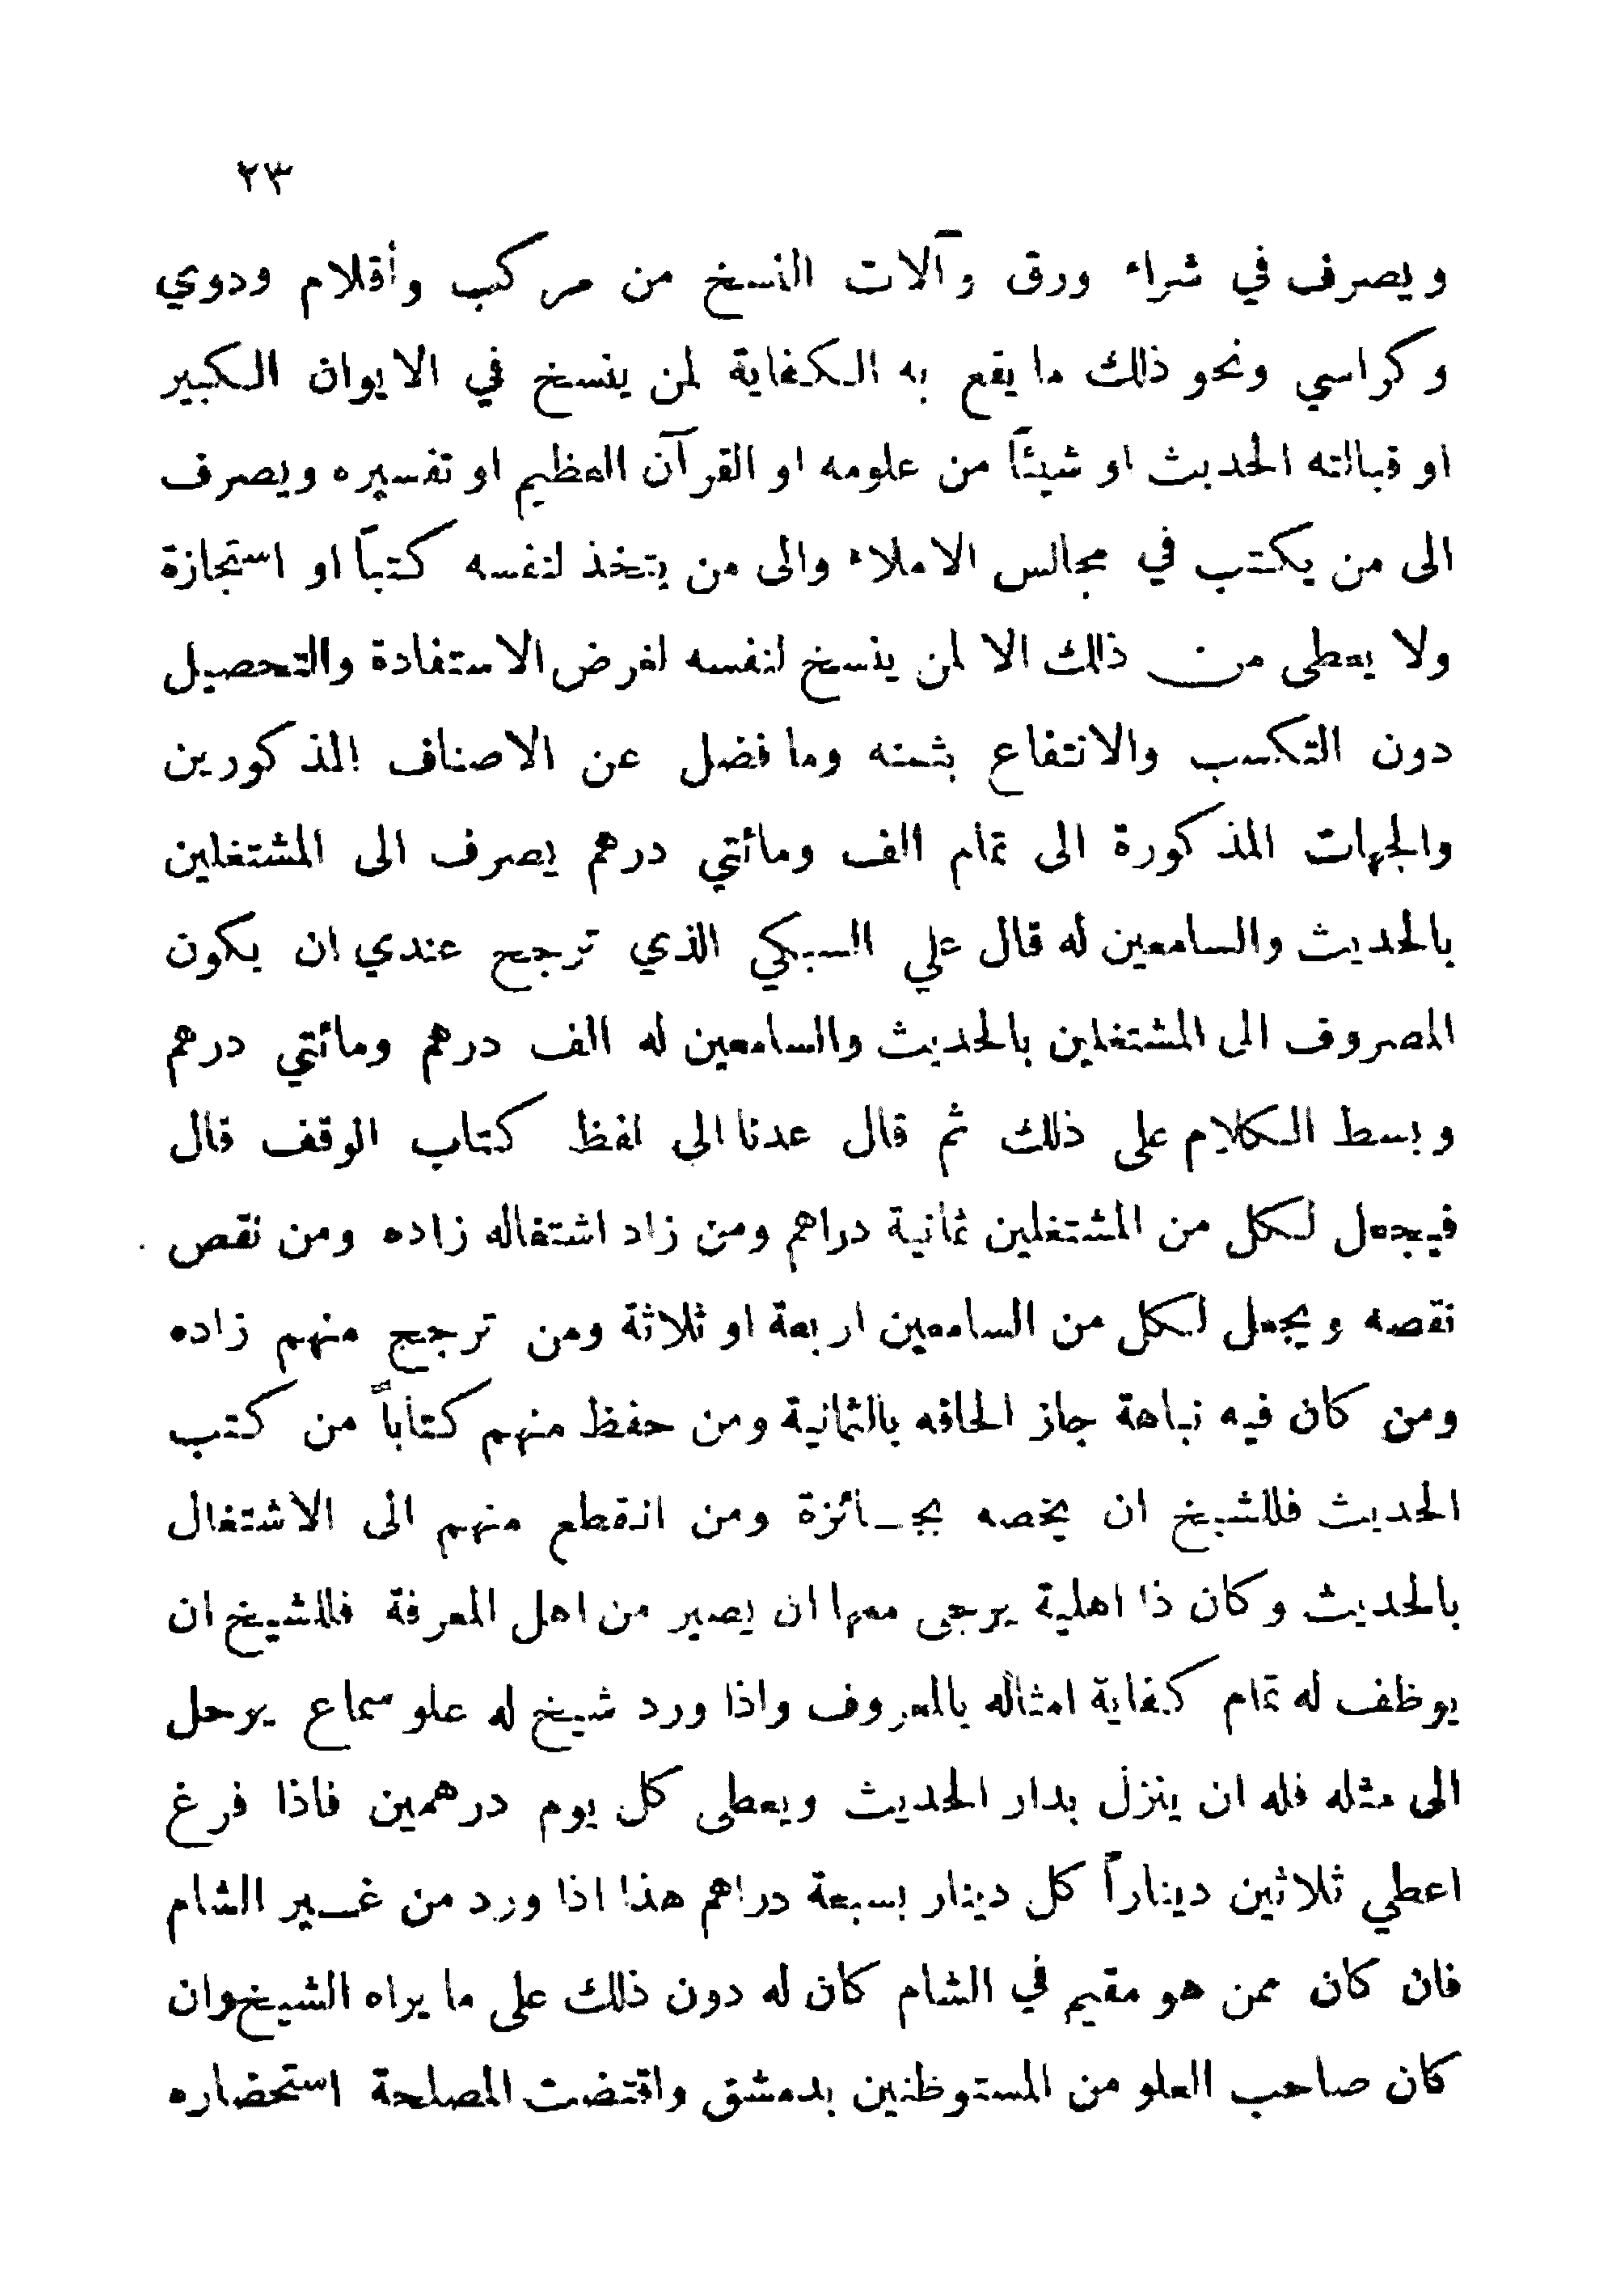 ٢٣
ويصرف في شراء ورق وآلات النسخ من مركب وأقلام ودوي
وكراسي ونحو ذلك ما يقع به الكفاية لمن ينسخ في الايوان الكبير
او قبالته الحديث او شيئاً من علومه او القرآن العظيم او تفسيره ويصرف
الى من يكتب في مجالس الاملاء والى من يتخذ لنفسه كتباً او استجازة
ولا يعطى من ذلك الا لمن ينسخ لنفسه لغرض الاستفادة والتحصيل
دون التكسب والانتفاع بثمنه وما فضل عن الاصناف المذكورين
والجهات المذكورة الى تمام الف ومائتي درهم يصرف الى المشتغلين
بالحديث والسامعين له قال علي السبكي الذي ترجح عندي ان يكون
المصروف الى المشتغلين بالحديث والسامعين له الف درهم ومائتي درهم
وبسط الكلام على ذلك ثم قال عدنا الى لفظ كتاب الوقف قال
فيجعل لكل من المشتغلين ثمانية دراهم ومن زاد اشتغاله زاده ومن نقص
نقصه ويجعل لكل من السامعين اربعة او ثلاثة ومن ترجح منهم زاده
ومن كان فيه نباهة جاز الحاقه بالثمانية ومن حفظ منهم كتاباً من كتب
الحديث فللشيخ ان يخصه بجائزة ومن انقطع منهم الى الاشتغال
بالحديث وكان ذا اهلية يرجى معها ان يصير من اهل المعرفة فللشيخ ان
يوظف له تمام كفاية امثاله بالمعروف واذا ورد شيخ له علو سماع يرحل
الى مثله فله ان ينزل بدار الحديث ويعطى كل يوم درهمين فاذا فرغ
اعطي ثلاثين ديناراً كل دينار بسبعة دراهم هذا اذا ورد من غير الشام
فان كان ممن هو مقيم في الشام كان له دون ذلك على ما يراه الشيخ وان
كان صاحب العلو من المستوطنين بدمشق واقتضت المصلحة استحضاره